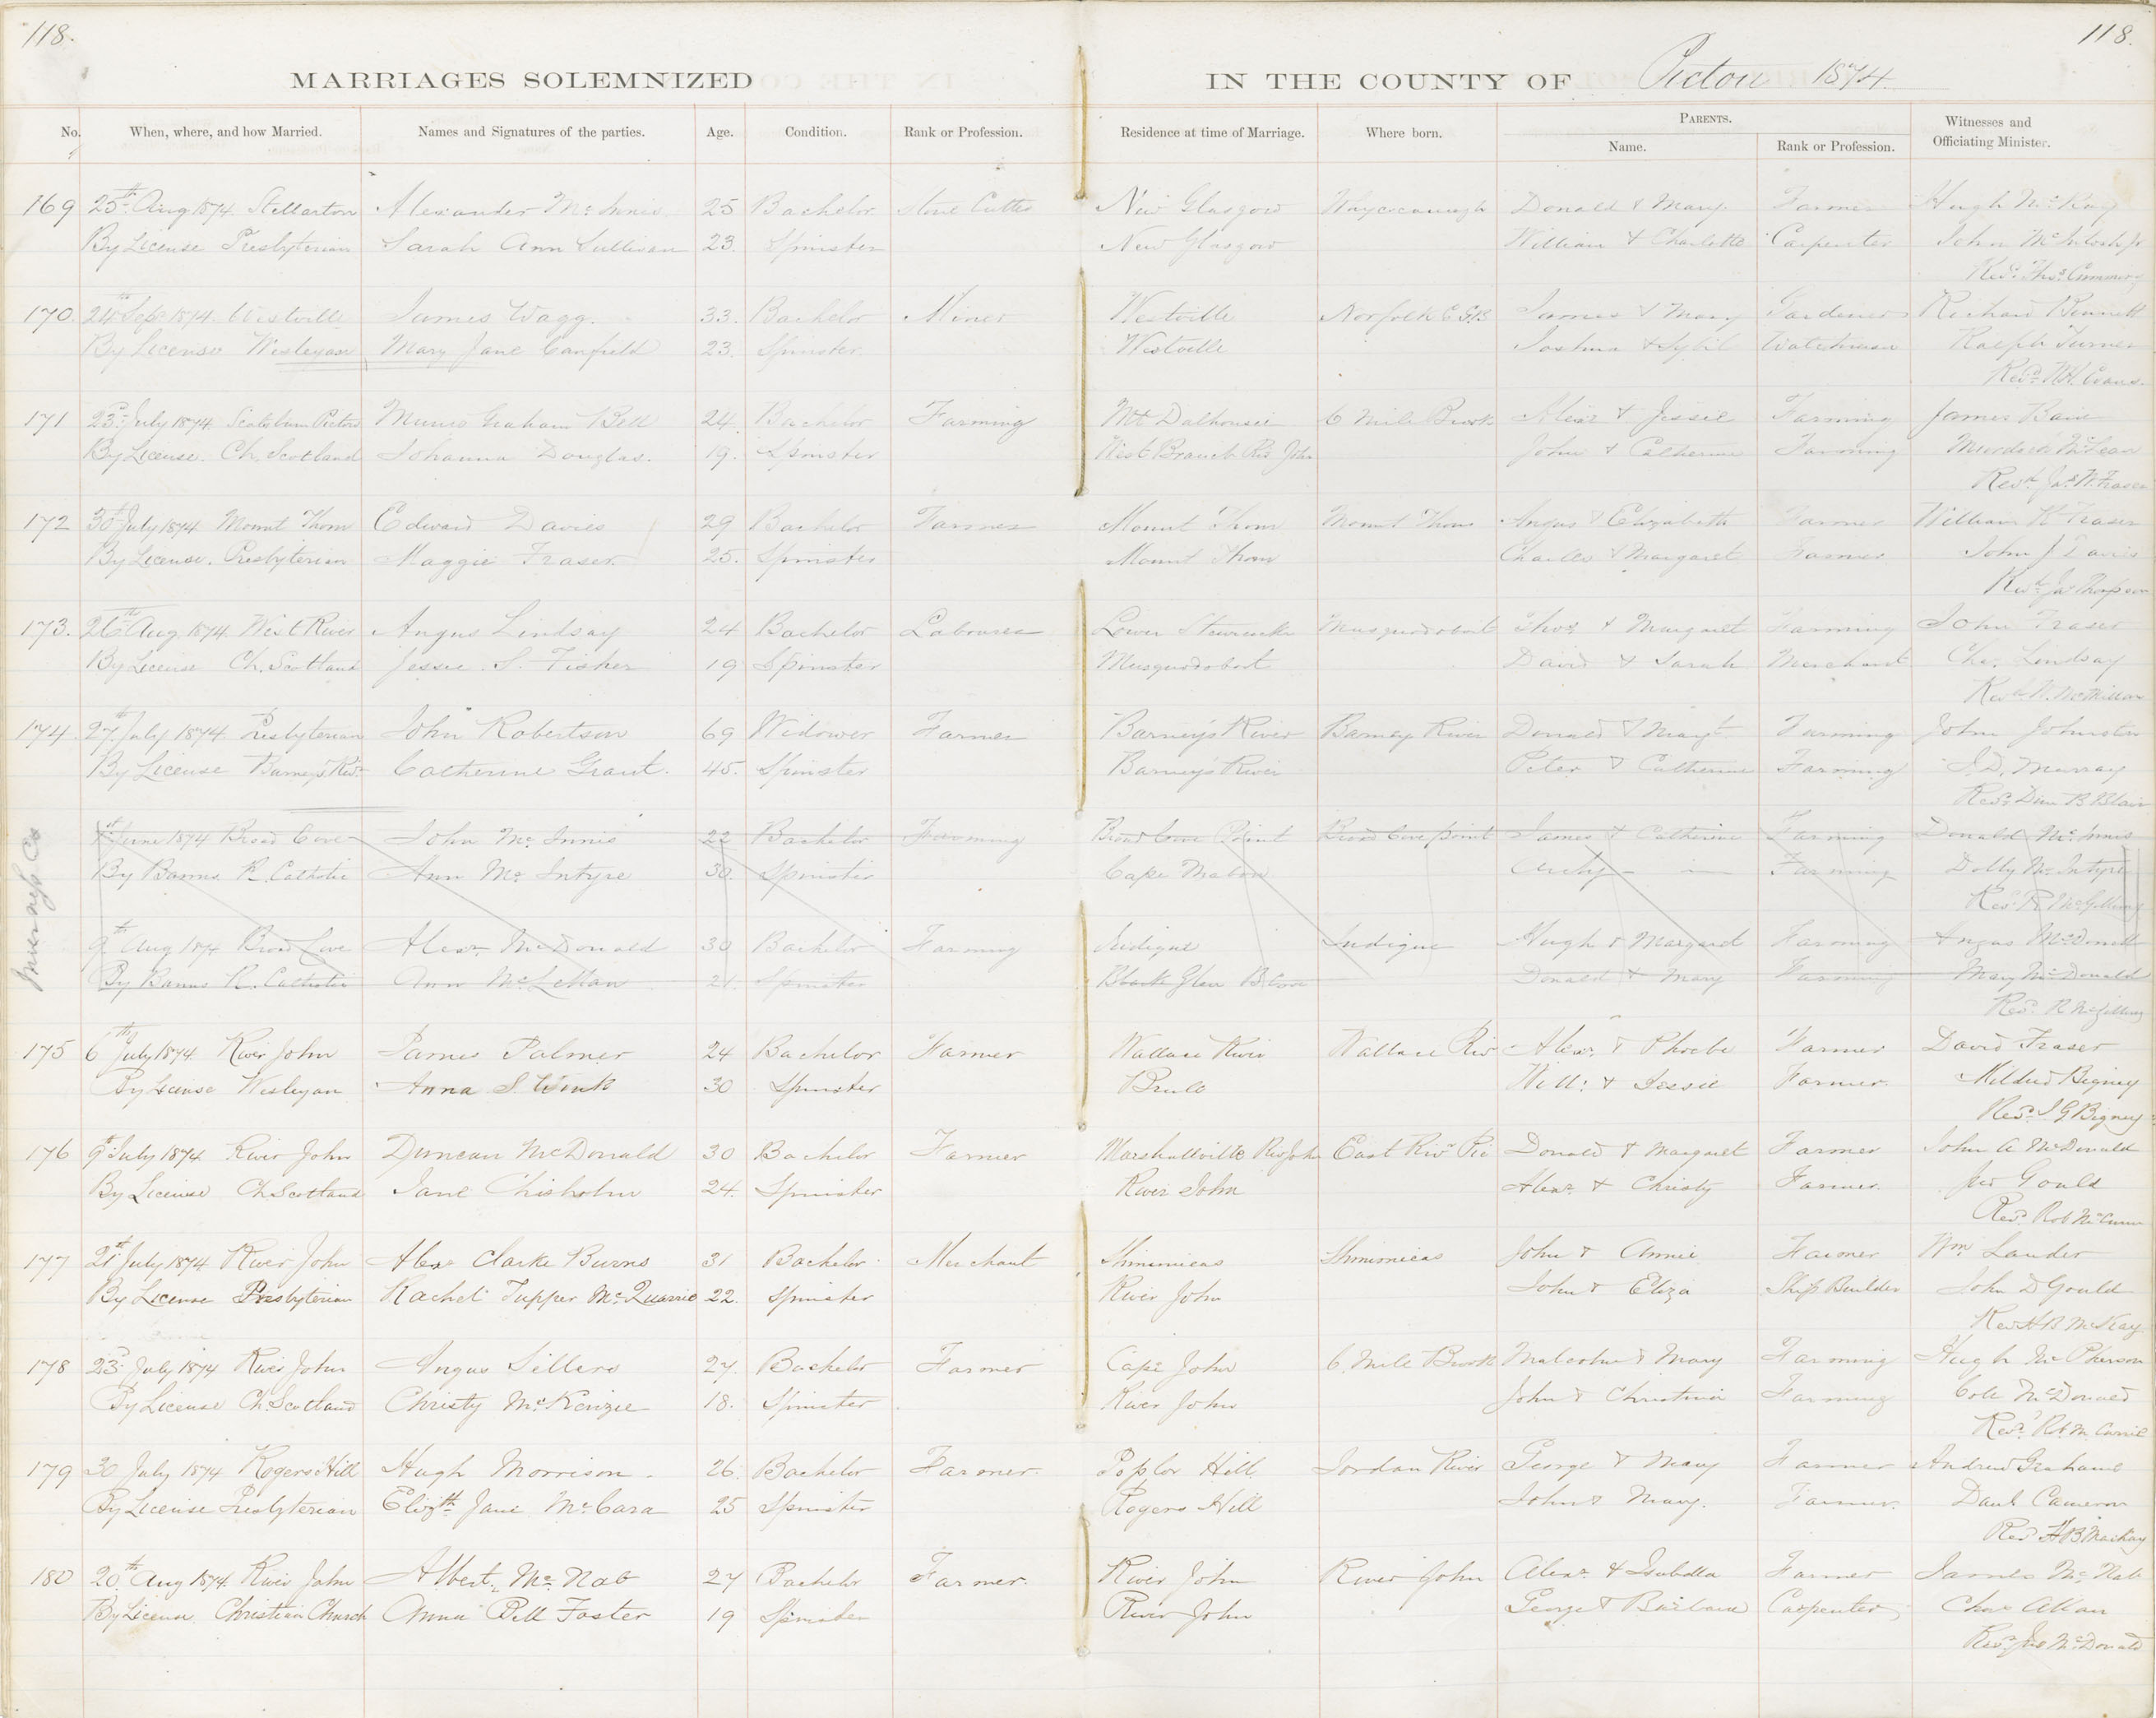 118. 118.
MARRIAGES SOLEMNIZED IN THE COUNTY OF Pictou 1874.
No. When, where, and how Married. Names and Signatures of the parties. Age. Condition. Rank or Profession. Residence at time of Marriage. Where born. PARENTS. Name. Rank or Profession. Witnesses and Officiating Minister.
169 25th Aug 1874. Stellarton Alexander McInnis 25 Bachelor Stone Cutter New Glasgow Donald & Mary Farmer Hugh McKay
By License Presbyterian Sarah Ann Sullivan 23. Spinster New Glasgow William & Charlotte Carpenter John McIntosh Jr
Revd. Thos. Cumming
170. 24th Sept 1874. Westville James Wagg. 33. Bachelor Miner Westville Norfolk C G.B James & Mary Gardener Richard Bennett
By License Wesleyan Mary Jane Canfield 23. Spinster. Westville Joshua & Sybil Watchman Ralph Turner
Revd. Evans
171 23d July 1874 Scotsburn Pictou Munro Graham Bell 24. Bachelor Farming Mt Dalhousie 6 Mile Brook Alexr & Jessie Farming James Bain
By License. Ch. Scotland Johanna Douglas. 19. Spinster West Branch Riv John John & Catherine Farming Murdoch McLean
Revd Jas W Fraser
172 30th July 1874 Mount Thom Edward Davies 29 Bachelor Farmer Mount Thom Mount Thom Angus & Elizabeth Farmer William K Fraser
By License. Presbyterian Maggie Fraser 25. Spinster Mount Thom Charles & Margaret Farmer John J Davies
Revd. Jas Thompson
173. 26th Aug 1874. West River Angus Lindsay 24 Bachelor Labourer Lower Stewiacke Musquodoboit Thos & Margaret Farming John Fraser
By License Ch. Scotland Jessie S. Fisher 19 Spinster Musquodoboit David & Sarah Merchant Chs. Lindsay
Revd McMillan
174. 27th July 1874. Presbyterian John Robertson 69 Widower Farmer Barney's River Barneys River Donald & Margt Farming John Johnston
By License Barneys Rivr Catherine Grant. 45. Spinster Barney's River Peter & Catherine Farming J.D. Murray
Revd. D B Blair
Inverness Co
1st June 1874 Broad Cove John McInnis 22 Bachelor Farming Broad Cove Point Broad Cove point James & Catherine Farming Donald McInnis
By Banns R. Catholic Ann McIntyre 30. Spinster Cape Mabou Archy Farming Dolly McIntyre
Revd R McGillivray
9th Aug 1874 Broad Cove Alexr McDonald 30 Bachelor Farming Judique Judique Hugh & Margaret Farming Angus McDonell
By Banns R. Catholic Ann McLellan 21. Spinster Black Glen B. Cove Donald & Mary Farming Mary McDonald
Revd. R McGillivray
175 6th July 1874 River John James Palmer 24 Bachelor Farmer Wallace River Wallace Riv Alexr. & Phoebe Farmer David Fraser
By License Wesleyan Anna S. 30 Spinster Brule Will: & Jessie Farmer. Mildred Bigney
Revd. J G Bigney
176 9th July 1874 River John Duncan McDonald 30 Bachelor Farmer Marshallville Riv John East Rivr Pic Donald & Margaret Farmer John A McDonald
By License Ch Scotland Jane Chisholm 24. Spinster River John Alexr. & Christy Farmer. Jno Gould
Revd. Rob McCunn
177 21st July 1874 River John Alexr Clarke Burns 31 Bachelor Merchant Shinimicas Shinimicas John & Annie Farmer Wm Lauder
By License Presbyterian Rachel Tupper McQuarrie 22. Spinster River John John & Eliza Ship Builder John D Gould
Rev H B McKay
178 23d July 1874 River John Angus Sillers 27. Bachelor Farmer Cape John 6 Mile Brook Malcolm & Mary Farming Hugh McPherson
By License Ch Scotland Christy McKenzie 18. Spinster River John John & Christina Farming McDonald
Revd.
179 30 July 1874 Rogers Hill Hugh Morrison 26. Bachelor Farmer. Poplar Hill Jordan River George & Mary Farmer Andrew Grahame
By License Presbyterian Elizth Jane McCara 25 Spinster Rogers Hill John & Mary. Farmer. Danl. Cameron
Revd H B Mackay
180 20th Aug 1874. River John Albert McNab 27 Bachelor Farmer. River John River John Alexr & Isabella Farmer James McNab
By License Christian Church Anna Bell Foster 19 Spinster River John George & Barbara Carpenter Chas Allan
Revd. McDonald